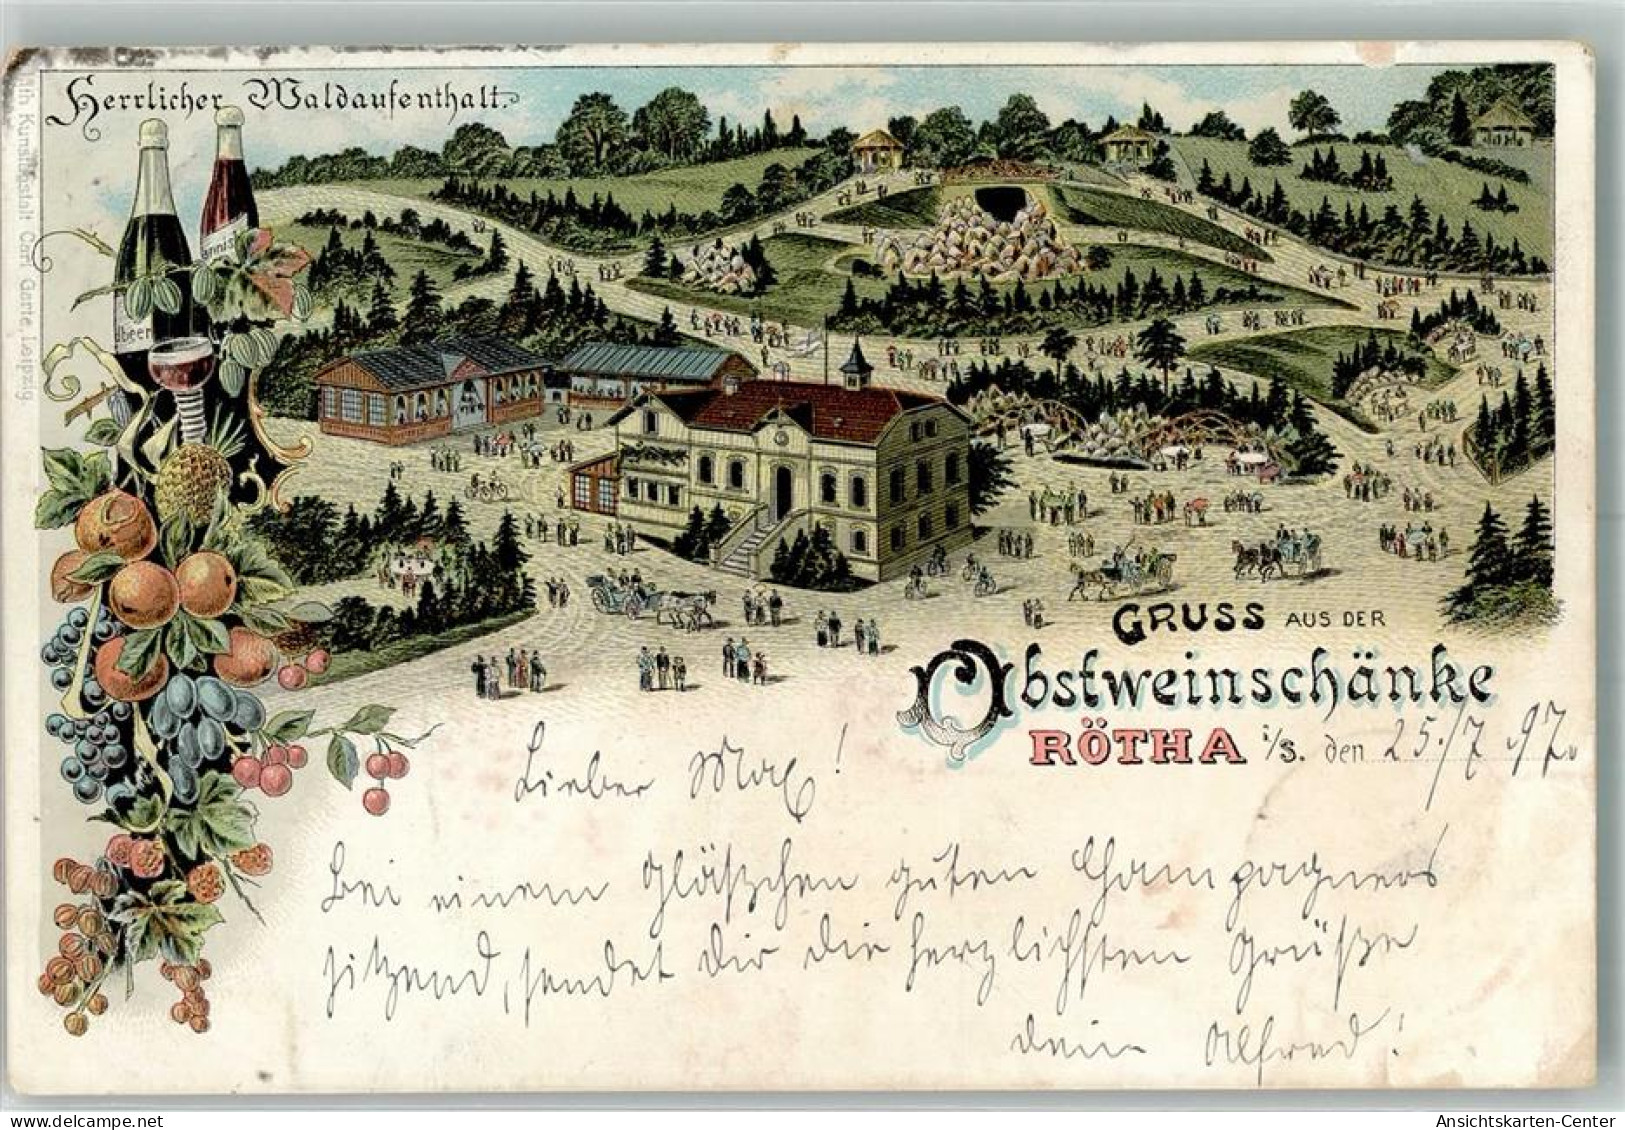 Herrlicher Waldaufenthalt.
Lith. Kunstanstalt Carl Garte, Leipzig.
GRUSS AUS DER
Obstweinschänke
RÖTHA i/S. den 25./7.97.
Lieber Max!
Bei einem Gläschen guten Champagners
sitzend, sendet dir die herzlichsten Grüße
dein Alfred!
Ansichtskarten-Center